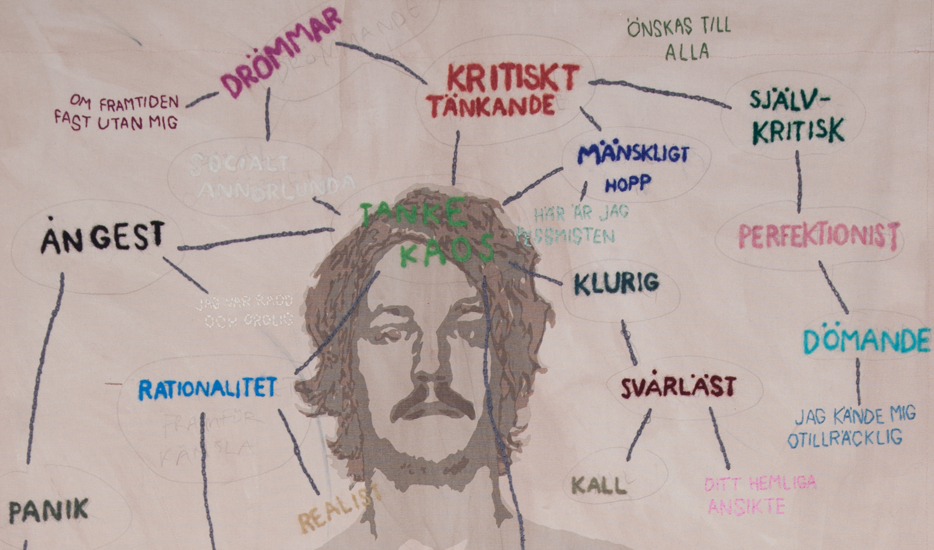 DRÖMMAR
ÖNSKAS TILL
ALLA
KRITISKT
TÄNKANDE
OM FRAMTIDEN
FAST UTAN MIG
SJÄLV-
KRITISK
SOCIALT
ANNORLUNDA
MÄNSKLIGT
HOPP
TANKE
KAOS
HÄR ÄR JAG
ÅNGEST
PERFEKTIONIST
KLURIG
JAG VAR RÄDD
OCH OROLIG
DÖMANDE
RATIONALITET
FRAMFÖR
KÄNSLA
SVÅRLÄST
JAG KÄNDE MIG
OTILLRÄCKLIG
REALIST
KALL
DITT HEMLIGA
ANSIKTE
PANIK